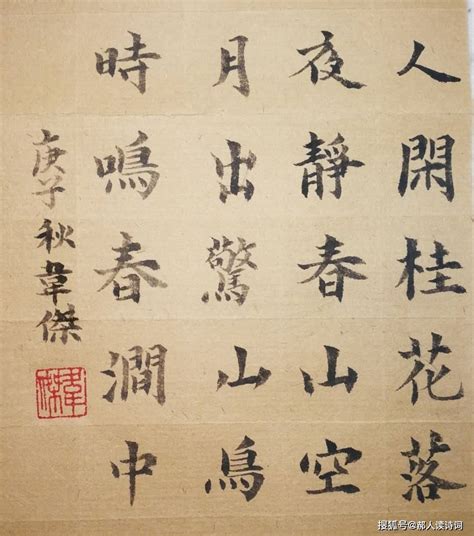 人閑桂花落
夜靜春山空
月出驚山鳥
時鳴春澗中
庚子秋韋傑
韋傑
搜狐号@郝人读诗词